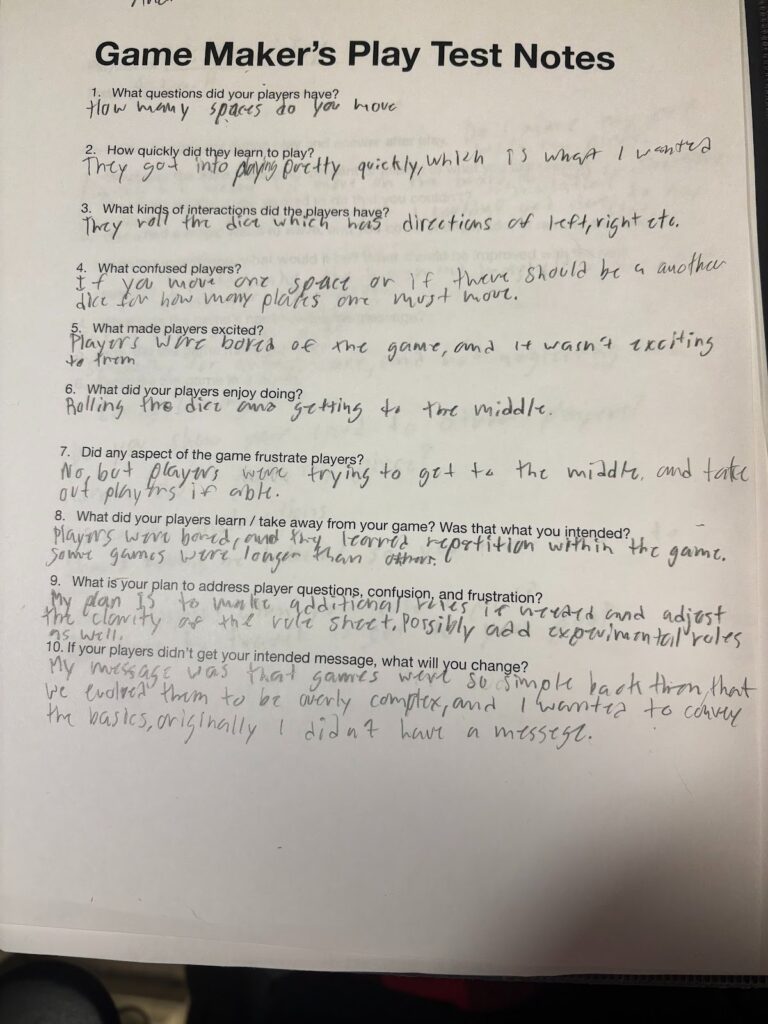 Game Maker's Play Test Notes
1. What questions did your players have?
How many spaces do you move
2. How quickly did they learn to play?
They got into playing pretty quickly, which is what I wanted
3. What kinds of interactions did the players have?
They roll the dice which has directions of left, right etc.
4. What confused players?
If you move one space or if there should be a another
dice for how many places one must move.
5. What made players excited?
Players were bored of the game, and it wasn't exciting
to them
6. What did your players enjoy doing?
Rolling the dice and getting to the middle.
7. Did any aspect of the game frustrate players?
No, but players were trying to get to the middle, and take
out players if able.
8. What did your players learn / take away from your game? Was that what you intended?
Players were bored, and they learned repetition within the game.
Some games were longer than others.
9. What is your plan to address player questions, confusion, and frustration?
My plan is to make additional rules if needed and adjust
the clarity of the rule sheet, Possibly add experimental rules
as well.
10. If your players didn't get your intended message, what will you change?
My message was that games were so simple back then, that
we evolved them to be overly complex, and I wanted to convey
the basics, originally I didn't have a messege.